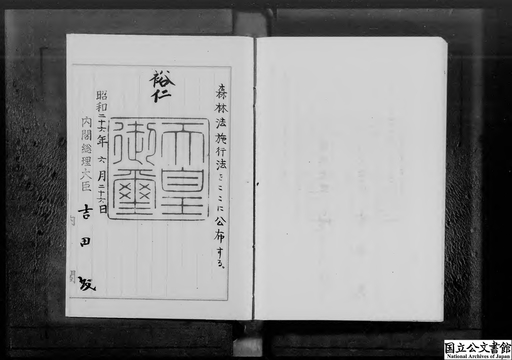 森林法施行法をここに公布する。
裕仁
天皇
御璽
昭和二十六年六月二十六日
内閣総理大臣
吉田茂
国立公文書館
National Archives of Japan